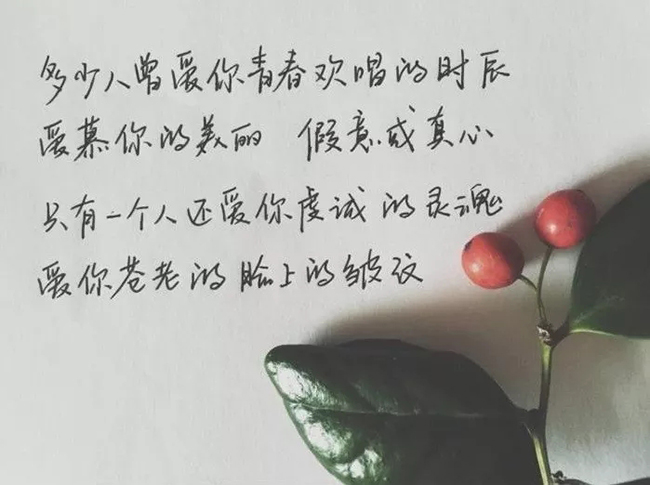 多少人曾爱你青春欢唱的时辰
爱慕你的美丽 假意或真心
只有一个人还爱你虔诚的灵魂
爱你苍老的脸上的皱纹